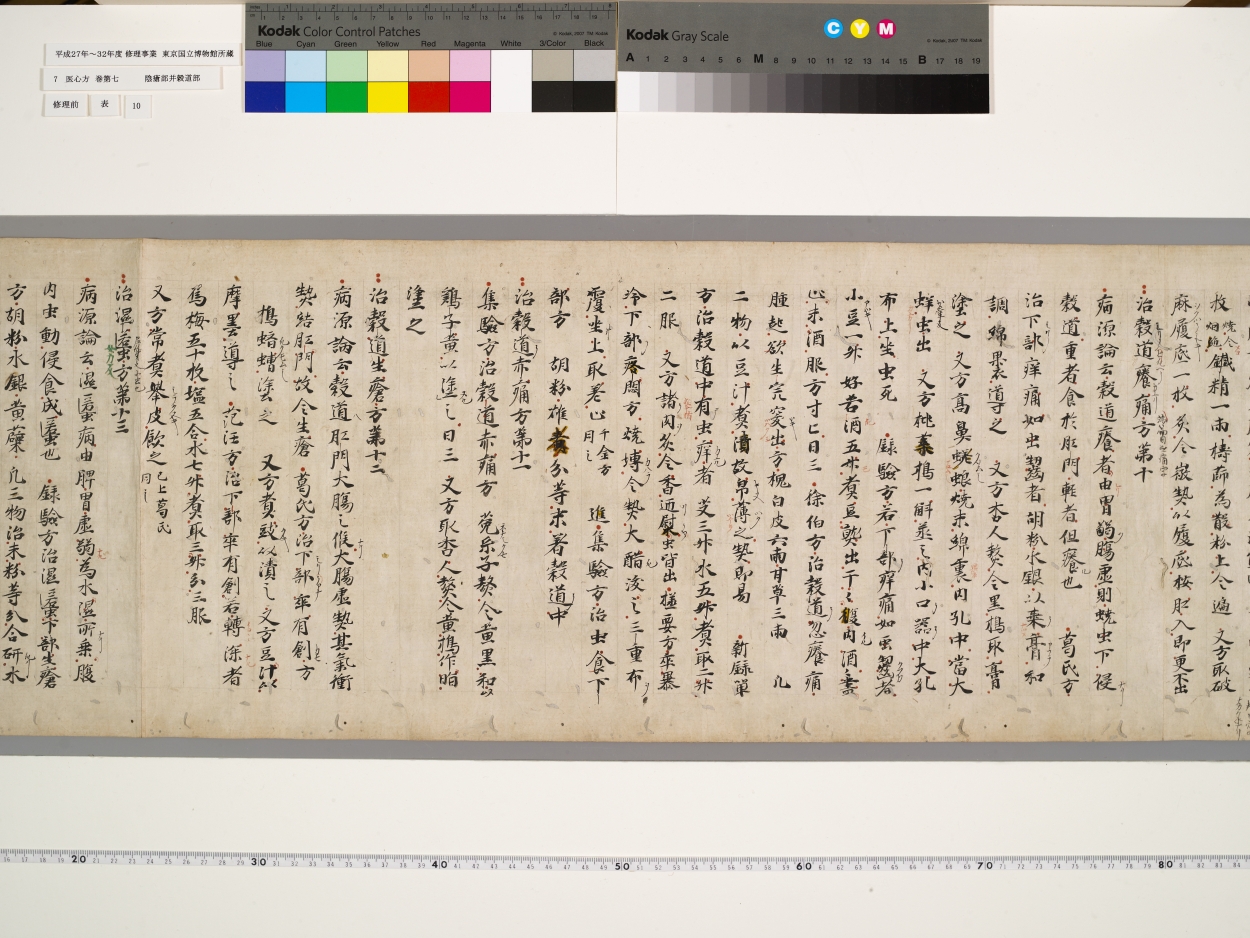 平成27年〜32年度 修理事業 東京国立博物館所蔵
7 医心方 巻第七 陰瘡部并穀道部
修理前 表 10
Kodak Color Control Patches
Blue Cyan Green Yellow Red Magenta White 3/Color Black
© Kodak, 2007 TM: Kodak
Kodak Gray Scale
C Y M
© Kodak, 2007 TM: Kodak
A 1 2 3 4 5 6 M 8 9 10 11 12 13 14 15 B 17 18 19
枚 燒令烟絶 鐵精一兩擣篩為散粉上令遍 又方取破
麻履底一枚 炙令極熱以履底按肛入即更不出
治穀道癢痛方第十
病源論云穀道癢者由胃弱腸虚則蟯虫下侵
穀道重者食於肛門軽者但癢也 葛氏方
治下部痒痛如虫齧者胡粉水銀以棗膏和
調綿裹導之 又方杏人熬令黒搗取膏
塗之 又方高鼻蜣蜋燒末綿裹内孔中當大
蛘虫出 又方桃葉搗一斛蒸之内小口器中大孔
布上坐虫死 録驗方若下部痒痛如虫齧者
小豆一升 好苦酒五升煮豆熟出干之複内酒盡
止末酒服方寸匕日三 徐伯方治穀道忽癢痛
腫起欲生宍突出方槐白皮六兩甘草三兩 凡
二物以豆汁煮漬故帛薄之熱即易 新録單
方治穀道中有虫痒者 艾三升水五升煮取二升
二服 又方諸肉炙令香近尉虫皆出 極要方
冷下部疼悶方 燒塼令熱大醋淹之三重布
覆坐上取差止 千金方同之 進集驗方治虫食下
部方 胡粉雄黄分等末着穀道中
治穀道赤痛方第十一
集驗方治穀道赤痛方 菟糸子熬令黄黒和以
鶏子黄以塗之日三 又方取杏人熬令黄搗作脂
塗之
治穀道生瘡方第十二
病源論云穀道肛門大腸之候大腸虚熱其氣衝
熱結肛門故令生瘡 葛氏方治下部卒有創方
搗蛴螬塗之 又方煮豉以漬之又方豆汁以
摩墨導之 范汪方治下部卒有創若轉深者
烏梅五十枚塩五合水七升煮取三升分三服
又方常煮舉皮飲之 已上葛氏同之
治濕䘌方第十三
病源論云濕䘌病由脾胃虚弱為水濕所乗腹
内虫動侵食成䘌也 録驗方治濕䘌下部生瘡
方胡粉水銀黄蘗 凡三物治末粉等分合研水
20 30 40 50 60 70 80